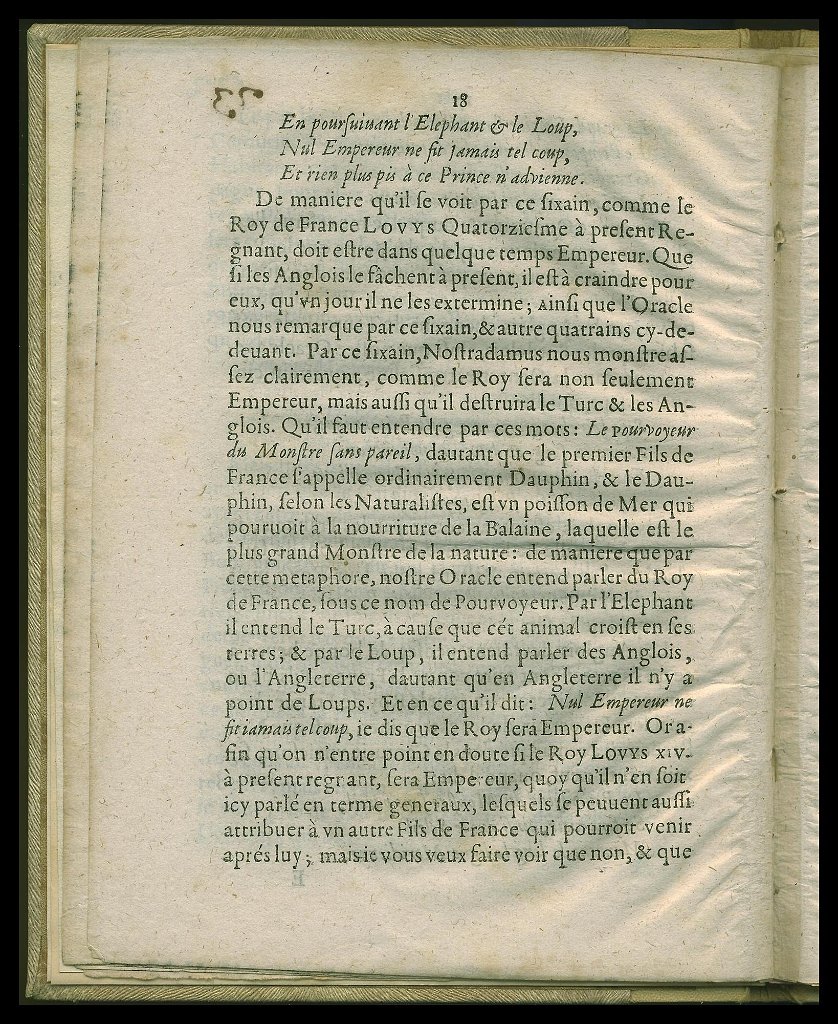 18
En pourſuiuant l'Elephant & le Loup,
Nul Empereur ne fit jamais tel coup,
Et rien plus pis à ce Prince n'advienne.
De maniere qu'il ſe voit par ce ſixain, comme le
Roy de France LOVYS Quatorzieſme à preſent Re-
gnant, doit eſtre dans quelque temps Empereur. Que
ſi les Anglois le fâchent à preſent, il eſt à craindre pour
eux, qu'vn jour il ne les extermine; Ainſi que l'Oracle
nous remarque par ce ſixain, & autre quatrains cy-de-
deuant. Par ce ſixain, Noſtradamus nous monſtre aſ-
ſez clairement, comme le Roy ſera non ſeulement
Empereur, mais auſſi qu'il deſtruira le Turc & les An-
glois. Qu'il faut entendre par ces mots: Le pourvoyeur
du Monſtre ſans pareil, dautant que le premier Fils de
France ſ'appelle ordinairement Dauphin, & le Dau-
phin, ſelon les Naturaliſtes, eſt vn poiſſon de Mer qui
pouruoit à la nourriture de la Balaine, laquelle eſt le
plus grand Monſtre de la nature: de maniere que par
cette metaphore, noſtre Oracle entend parler du Roy
de France, ſous ce nom de Pourvoyeur. Par l'Elephant
il entend le Turc, à cauſe que cét animal croiſt en ſes
terres; & par le Loup, il entend parler des Anglois,
ou l'Angleterre, dautant qu'en Angleterre il n'y a
point de Loups. Et en ce qu'il dit: Nul Empereur ne
fit iamais tel coup, ie dis que le Roy ſera Empereur. Or a-
fin qu'on n'entre point en doute ſi le Roy LOVYS XIV.
à preſent regnant, ſera Empereur, quoy qu'il n'en ſoit
icy parlé en terme generaux, leſquels ſe peuuent auſſi
attribuer à vn autre Fils de France qui pourroit venir
aprés luy; mais ie vous veux faire voir que non, & que